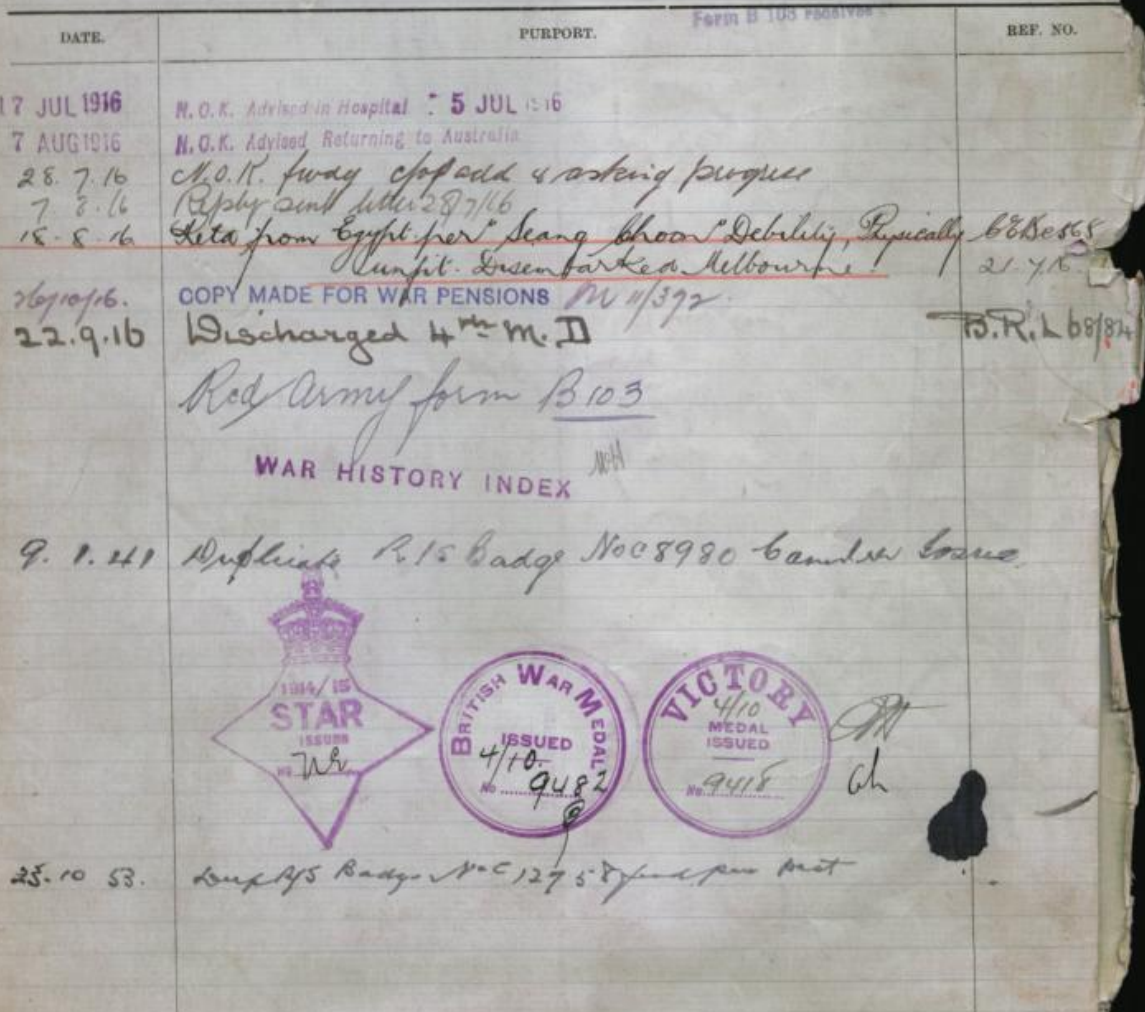 Form B 103 received
DATE. PURPORT. REF. NO.
17 JUL 1916 N.O.K. Advised in Hospital 5 JUL 1916
7 AUG 1916 N.O.K. Advised Returning to Australia
28.7.16 N.O.K. asking progress
7 8.16 Reply sent letter 28/7/16
18-8-16 Reta from Egypt per "Seang Choon" Debility, Physically
unfit. Disembarked Melbourne. 21.7.16
26/10/16. COPY MADE FOR WAR PENSIONS M 11/392
22.9.16 Discharged 4th M.D B.R.L 68/824
Red Army form B103
WAR HISTORY INDEX
9. 1.41 Duplicate R/S Badge No C8980
1914/15
STAR
ISSUED
No
BRITISH WAR MEDAL
ISSUED
4/10.
No 9482
VICTORY
4/10
MEDAL
ISSUED
No. 9418
23.10 53. Dup R/S Badge No C 12758 per post